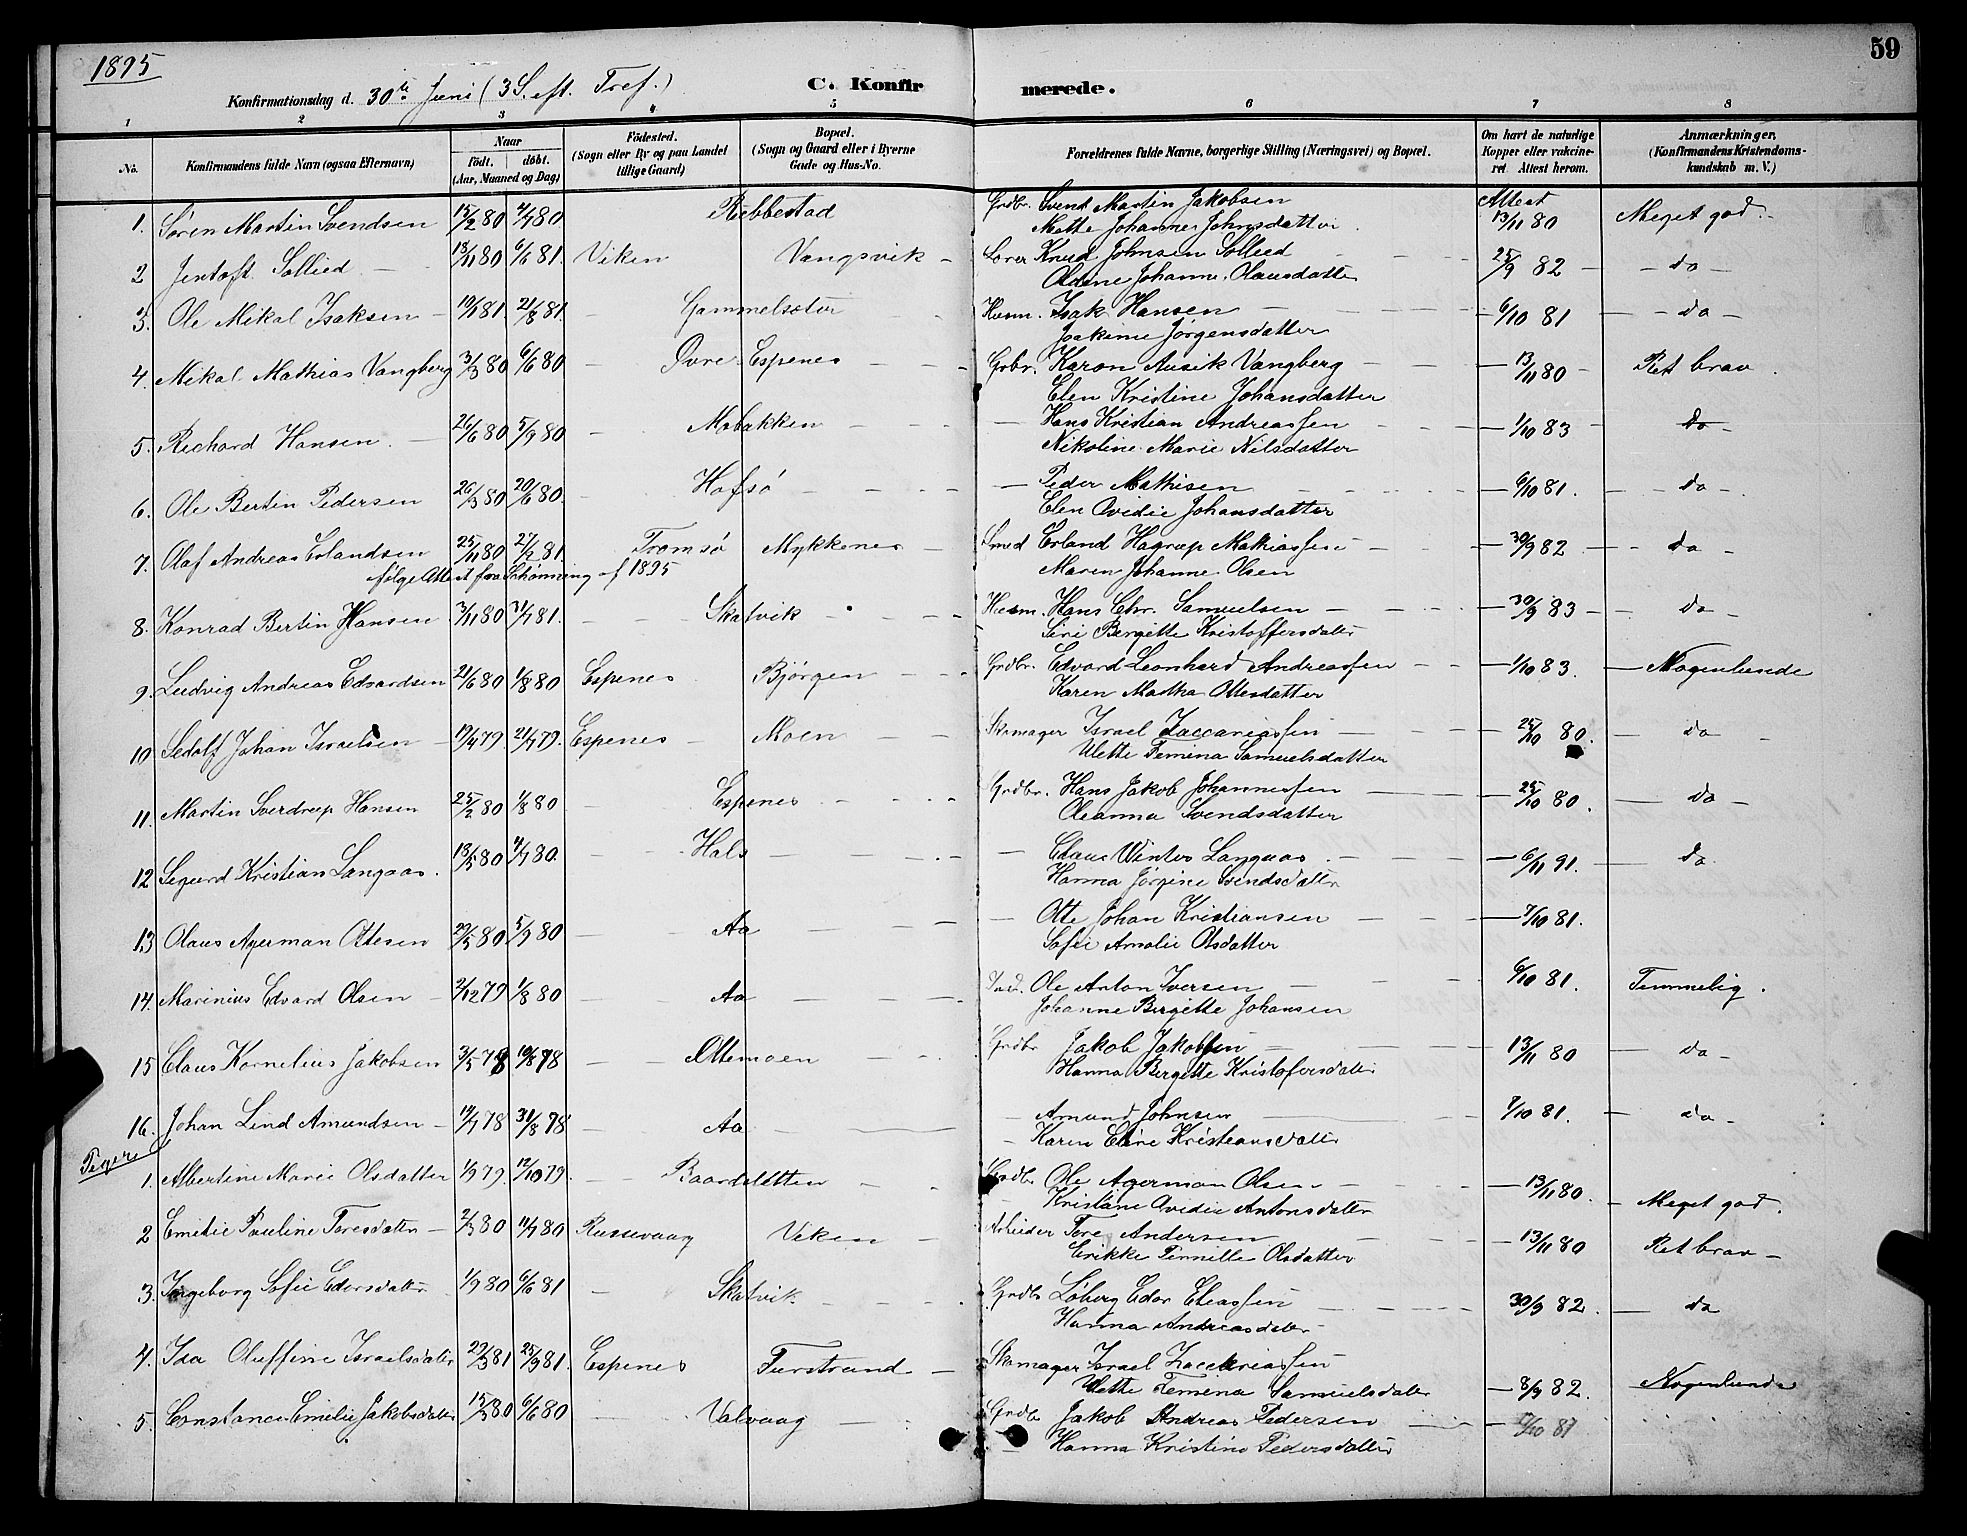 1895
59
Konfirmationsdag d. 30te Juni (3 S. eft. Tref.)
C. Konfirmerede.
1 2 3 4 5 6 7 8
No.
Konfirmandens fulde Navn (ogsaa Efternavn)
Naar
født. døbt.
(Aar, Maaned og Dag)
Fødested.
(Sogn eller By og paa Landet
tillige Gaard)
Bopæl.
(Sogn og Gaard eller i Byerne
Gade og Hus-No.
Forældrenes fulde Navne, borgerlige Stilling (Næringsvei) og Bopæl.
Om havt de naturlige
Kopper eller vakcine-
ret Attest herom.
Anmærkninger.
(Konfirmandens Kristendoms-
kundskab m. V.)
1. Søren Martin Svendsen 15/2 80 4/7 80 Rebbestad Grdbr. Svend Martin Jakobsen Attest 13/11 80 Meget god.
Mette Johanne Johnsdatter
2 Jentoft Sollied 18/11 80 6/6 81. Viken Vangsvik Lærer Knud Johnsen Sollied 25/9 82 do
Oldine Johanne Olausdatter
3. Ole Mikal Isaksen 21/8 81. Gammelsæter Husm. Isak Hansen 6/10 81 do
Joakime Jørgensdatter
4. Mikal Mathias Vangberg 3/3 80 6/6 80 Øvre Espenes Grbr. Karon Ausik Vangberg 13/11 80 Ret brav.
Elen Kristine Johansdatter
5. Richard Hansen 26/6 80 5/9 80 Mobakken Hans Kristian Andreassen 1/10 83 Do
Nikoline Marie Nilsdatter
6. Ole Bertin Pedersen 26/3 80 20/6 80. Hofsø Peder Mathisen 6/10 81. do
Elen Ovidie Johansdatter
7. Olaf Andreas Erlandsen 25/11 80 27/2 81. Tromsø Mykkenes Smed Erland Hagrup Mathiassen 30/9 82 do
følge Attest fra Schønning af 1895 Maren Johanne Olsen
8. Konrad Bertin Hansen 3/11 80 31/7 81. Skatvik Husm. Hans Chr. Samuelsen 30/9 83 do
Siri Bergitte Kristoffersdatter
9. Ludvig Andreas Edvardsen 21/6 80 1/8 80 Espenes Bjørgen Grdbr. Edvard Leonhard Andreassen 1/10 83. Nogenlunde
Karen Martha Ottesdatter
10 Sedolf Johan Israelsen 19/4 79 21/7 79. Espenes Moen Skomager Israel Zaccariassen 25/10 80. do
Ulette Femina Samuelsdatter
11. Martin Sverdrup Hansen 25/2 80 1/8 80 Espenes Grdbr. Hans Jakob Johannessen 25/10 80. do
Oleanna Svendsdatter
12 Sigurd Kristian Langaas. 18/5 80 4/7 80. Hals Claus Winter Langaas 6/11 91. do
Hanna Jørgine Svendsdatter
13 Olaus Agerman Ottesen 80 5/9 80 Aa Otte Johan Kristiansen 7/10 81.
Sofie Amalie Olsdatter
14. Marinius Edvard Olsen 2/12 79 1/8 80 Aa Ind. Ole Anton Iversen 6/10 81. Temmelig.
Johanne Birgitte Johansen
15 Claus Kornelius Jakobsen 3/5 78 Ottemoen Grdbr Jakob Jakobsen 13/11 80 do
Hanna Bergitte Kristofersdatter
16. Johan Lind Amundsen 19/7 78 31/8 78 Aa Amund Johnsen 7/10 81. do
Karen Eline Kristiansdatter
Piger
1. Albertine Marie Olsdatter 1/9 79. 12/10 79. Baardsletten Grdbr Ole Agerman Olsen 13/11 80. Meget god.
Kristane Ovidie Antonsdatter
2 Emilie Pauline Toresdatter 2/3 80 11/7 80 Russevaag Viken Arbeider Tore Andersen 13/11 80 Ret brav
Erikke Pernille Olsdatter
3. Ingeborg Sofie Edorsdatter 1/9 80 6/6 81 Skatvik Grdbr Løberg Edor Eliassen 30/9 82. do
Hanna Andreasdatter
4. Ida Oluffine Israelsdatter 29/3 81 25/9 81. Espenes Furstrand Skomager Israel Zacchriassen
Ulette Femina Samuelsdatter 8/9 82. Nogenlunde
5. Constance Emilie Jakobsdatter 15/3 80 6/6 80 Valvaag Grdbr Jakob Andreas Pedersen 81
Hanna Kristine Pedersdatter